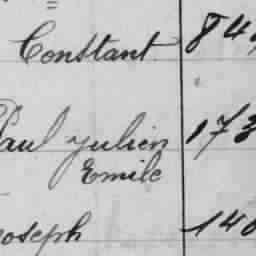 Constant 84
Paul Julien 173
Emile
Joseph 140